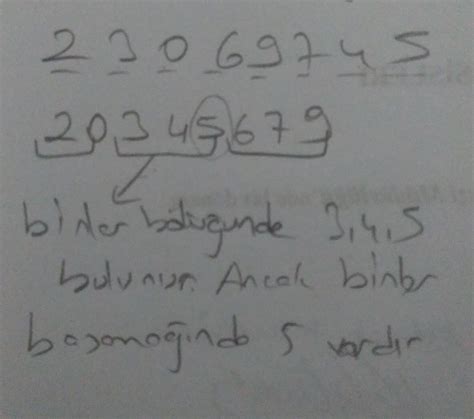 2 3 0 6 9 7 4 5
2 0 3 4 5 6 7 9
binler bölüğünde 3,4,5
bulunur. Ancak binler
basamağında 5 vardır